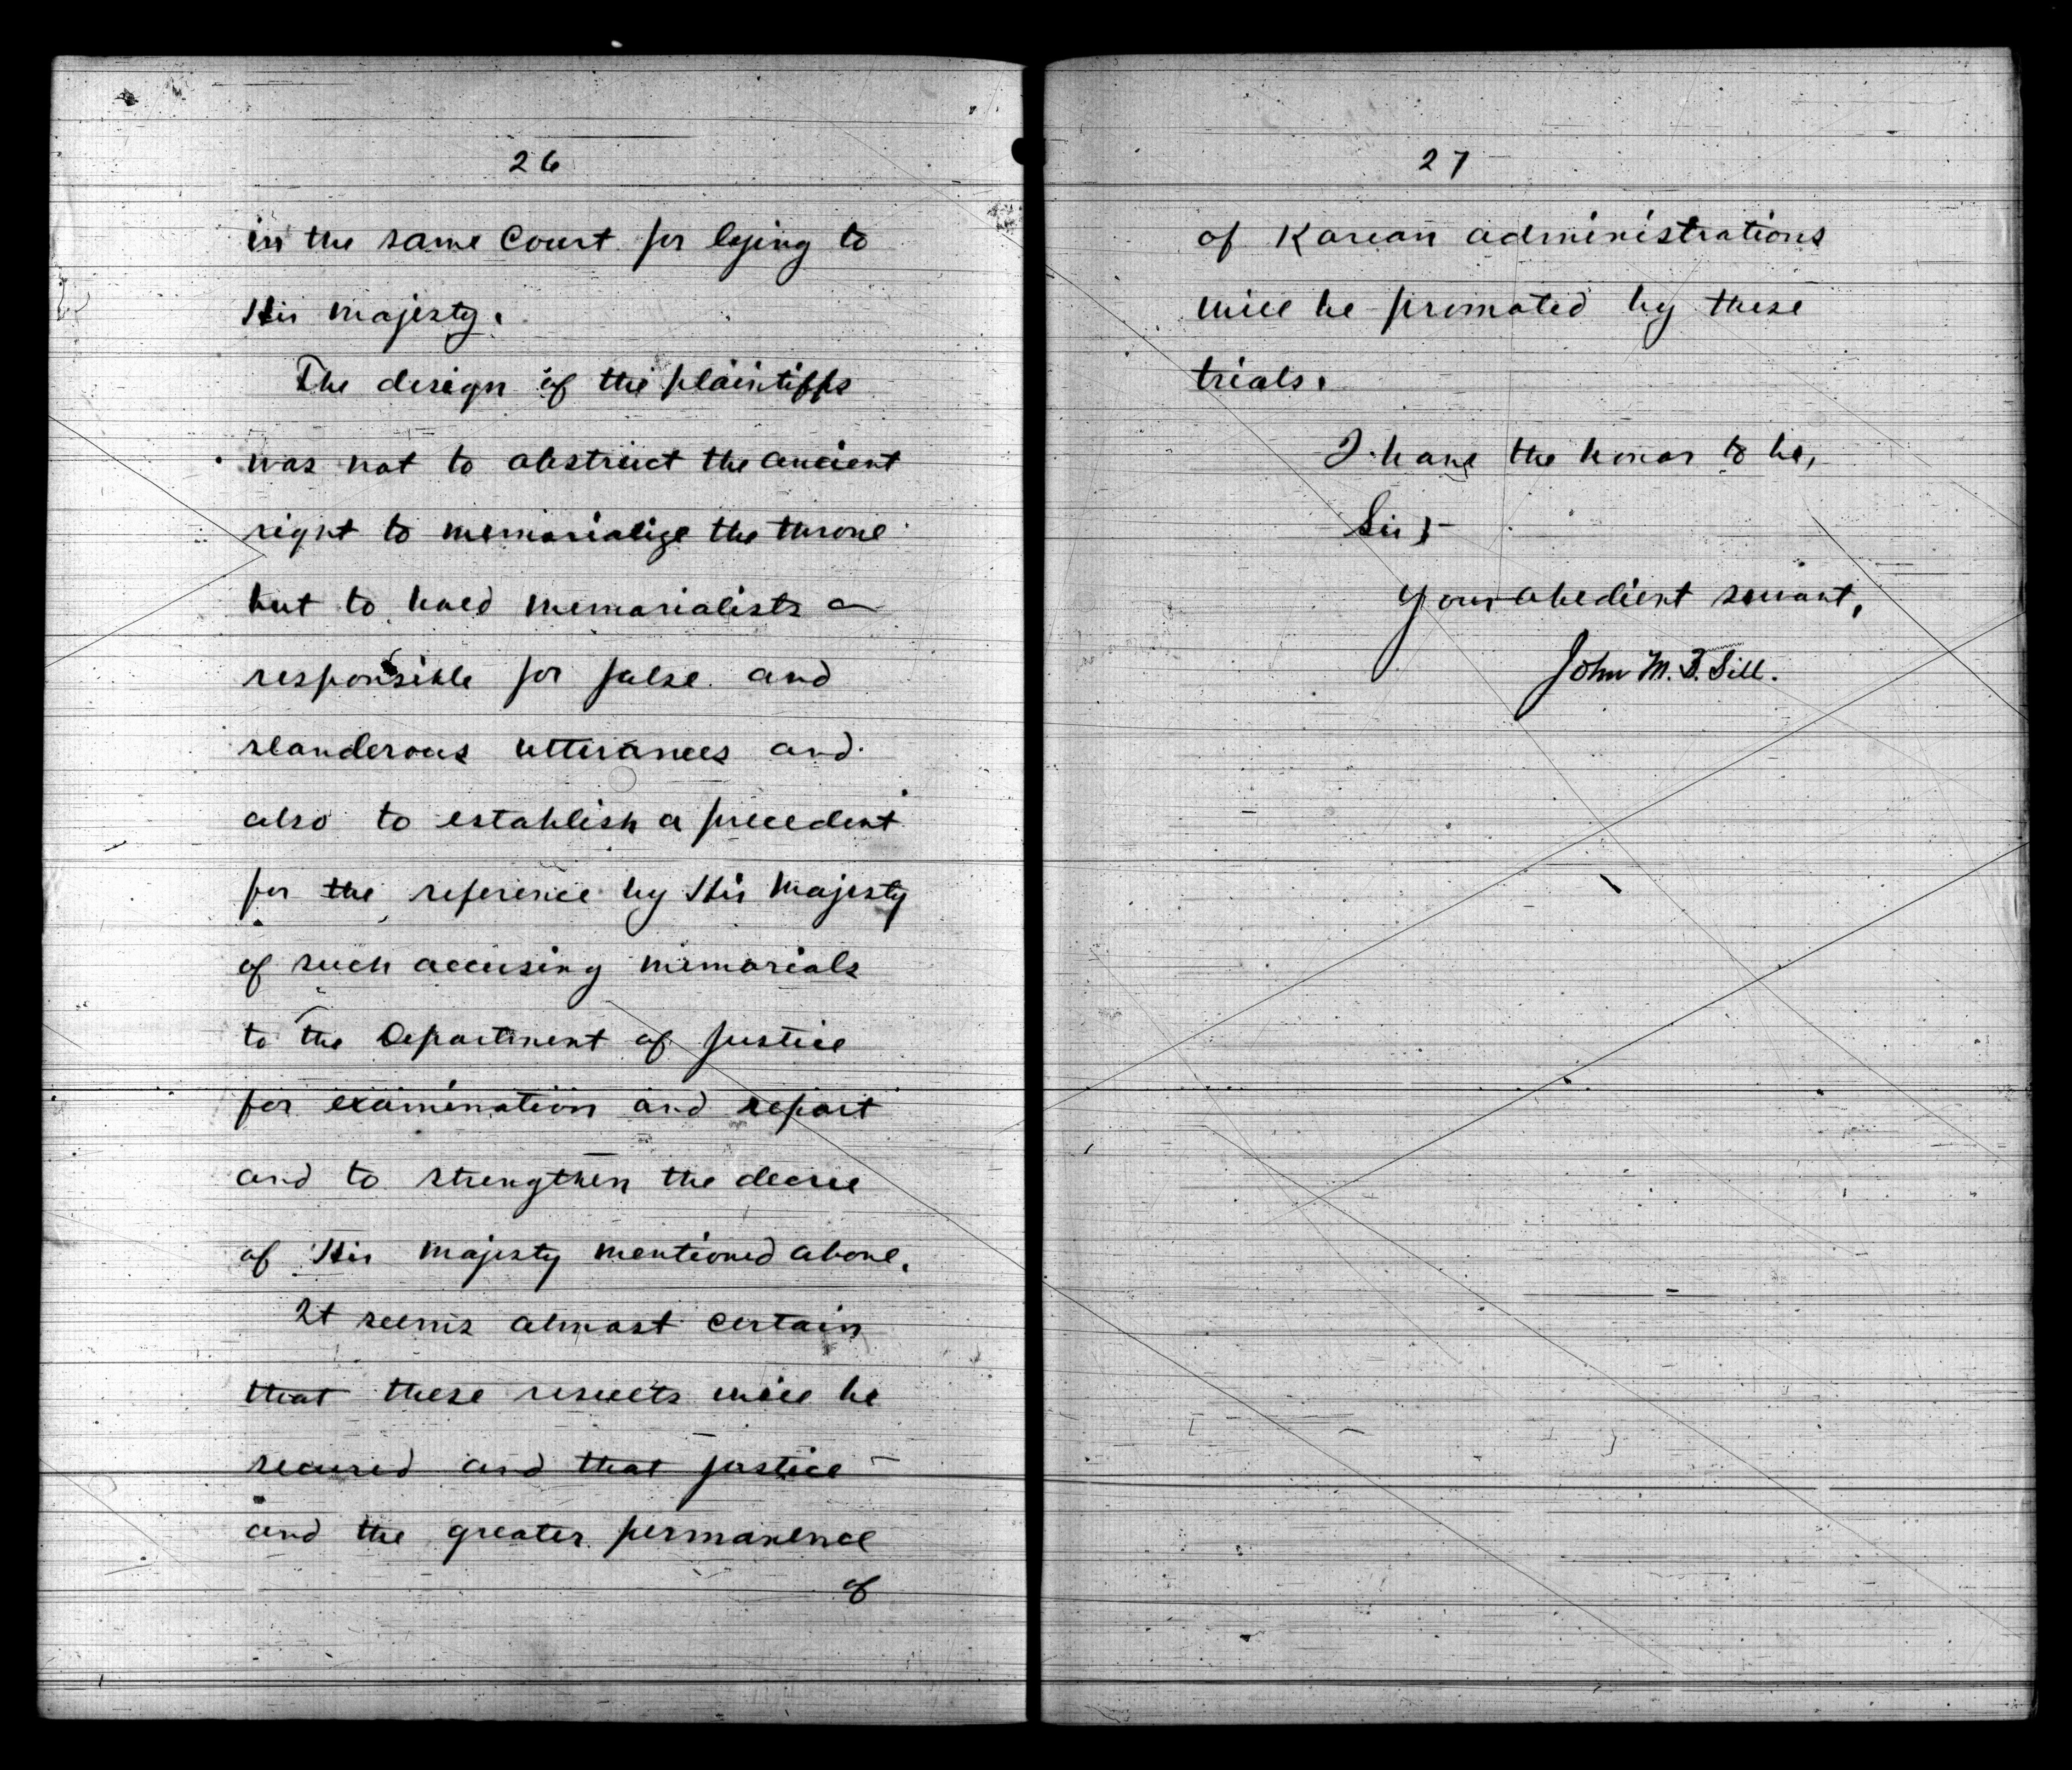 26
in the same Court for lying to
His Majesty.
The design of the plaintiffs
was not to obstruct the ancient
right to memorialize the throne
but to hold memorialists
responsible for false and
slanderous utterances and
also to establish a precedent
for the reference by His Majesty
of such accusing memorials
to the Department of Justice
for examination and report
and to strengthen the decree
of His Majesty mentioned above.
It seems almost certain
that these results will be
secured and that justice
and the greater permanence
of
27
of Korean administrations
will be promoted by these
trials.
I have the honor to be,
Sir;
Your obedient servant,
John M. B. Sill.